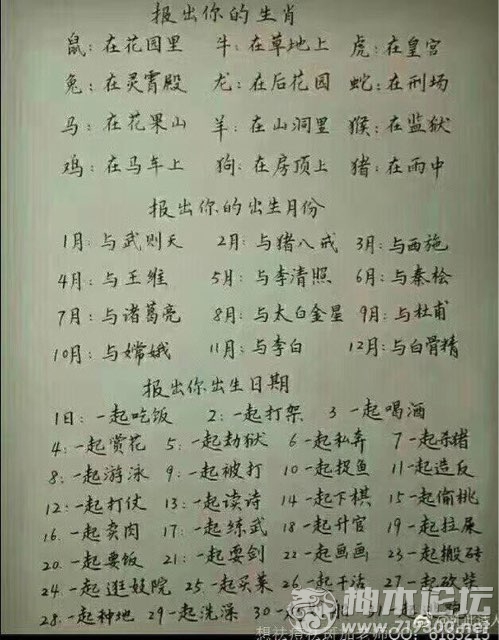 报出你的生肖
鼠：在花园里 牛：在草地上 虎：在皇宫
兔：在灵霄殿 龙：在后花园 蛇：在刑场
马：在花果山 羊：在山洞里 猴：在监狱
鸡：在马车上 狗：在房顶上 猪：在雨中
报出你的出生月份
1月：与武则天 2月：与猪八戒 3月：与西施
4月：与王维 5月：与李清照 6月：与秦桧
7月：与诸葛亮 8月：与太白金星 9月：与杜甫
10月：与嫦娥 11月：与李白 12月：与白骨精
报出你出生日期
1日：一起吃饭 2：一起打架 3 一起喝酒
4：一起赏花 5：一起劫狱 6 一起私奔 7 一起杀猪
8：一起游泳 9：一起被打 10 一起捉鱼 11 一起造反
12：一起打仗 13：一起读诗 14 一起下棋 15 一起偷桃
16．一起卖肉 17：一起练武 18 一起升官 19 一起拉屎
20．一起要饭 21：一起耍剑 22 一起画画 23 一起搬砖
24 一起逛妓院 25 一起买菜 26 一起干活 27 一起砍柴
28．一起种地 29 一起洗澡 30
柳木论坛
719300.net